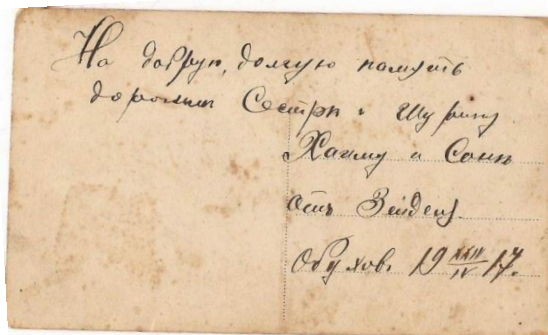 На добрую, долгую память
дорогимъ Сестрѣ и Шурину
Хаиму и Сонѣ
отъ Зейдел
Обухов. 19 XXII/IV 17.